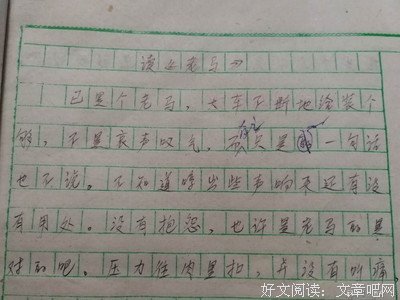 读《老马》
已是个老马，大车不断地给装个
够，不是哀声叹气，而是一句话
也不说。不知道哼出些声响来还有没
有用处。没有抱怨，也许是老马的是
对的吧。压力往肉里扣，却没有叫痛
好文阅读：文章吧网